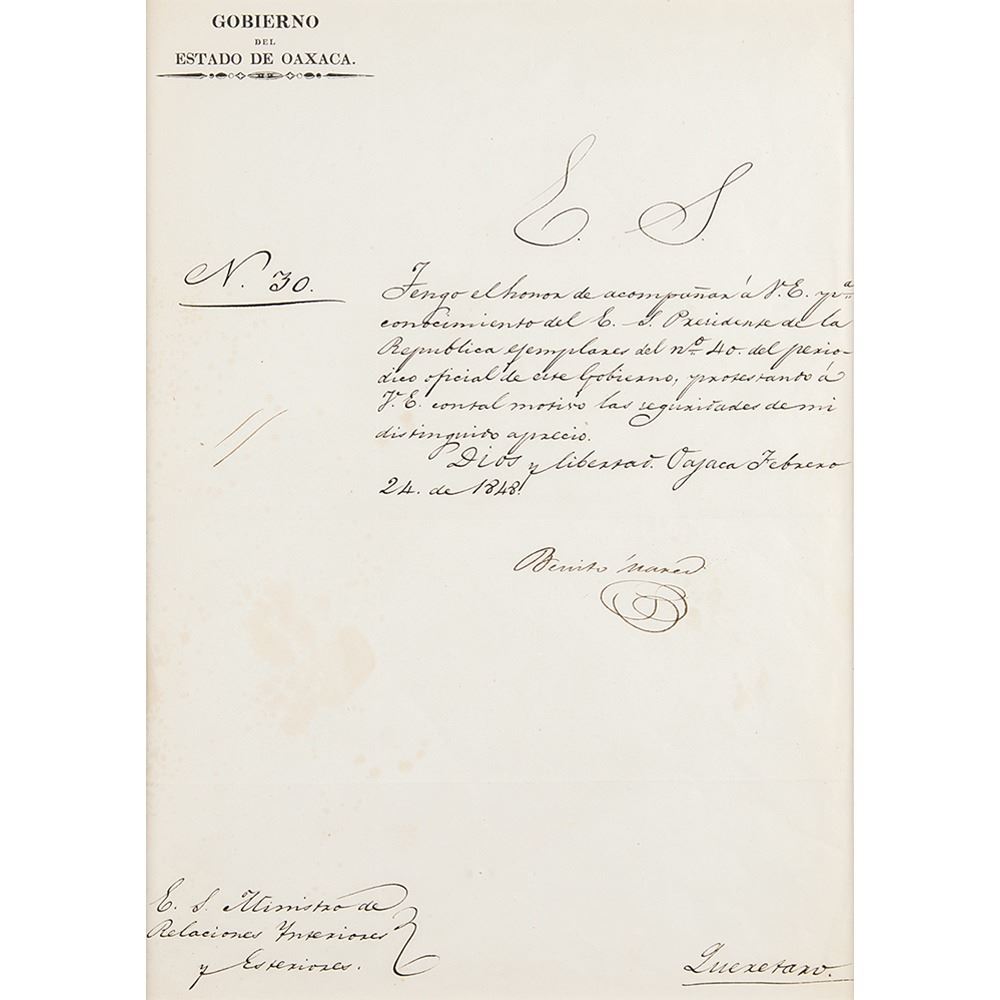 GOBIERNO
DEL
ESTADO DE OAXACA.
E. S.
N. 30.
Tengo el honor de acompañar á V. E. y pª
conocimiento del E. S. Presidente de la
Republica ejemplares del nº 40. del perio-
dico oficial de este Gobierno, protestando á
V. E. con tal motivo las seguridades de mi
distinguido aprecio.
Dios y libertad. Oajaca Febrero
24. de 1848.
Benito Juarez
E. S. Ministro de
Relaciones Interiores
y Esteriores.
Queretaro.